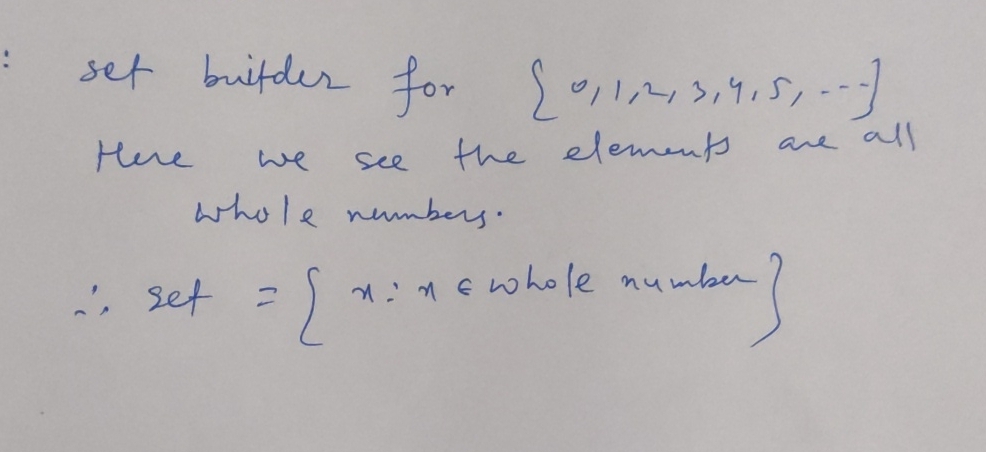 : set builder for { 0, 1, 2, 3, 4, 5, ---}
Here we see the elements are all
whole numbers.
∴ set = { x : x ∈ whole number }